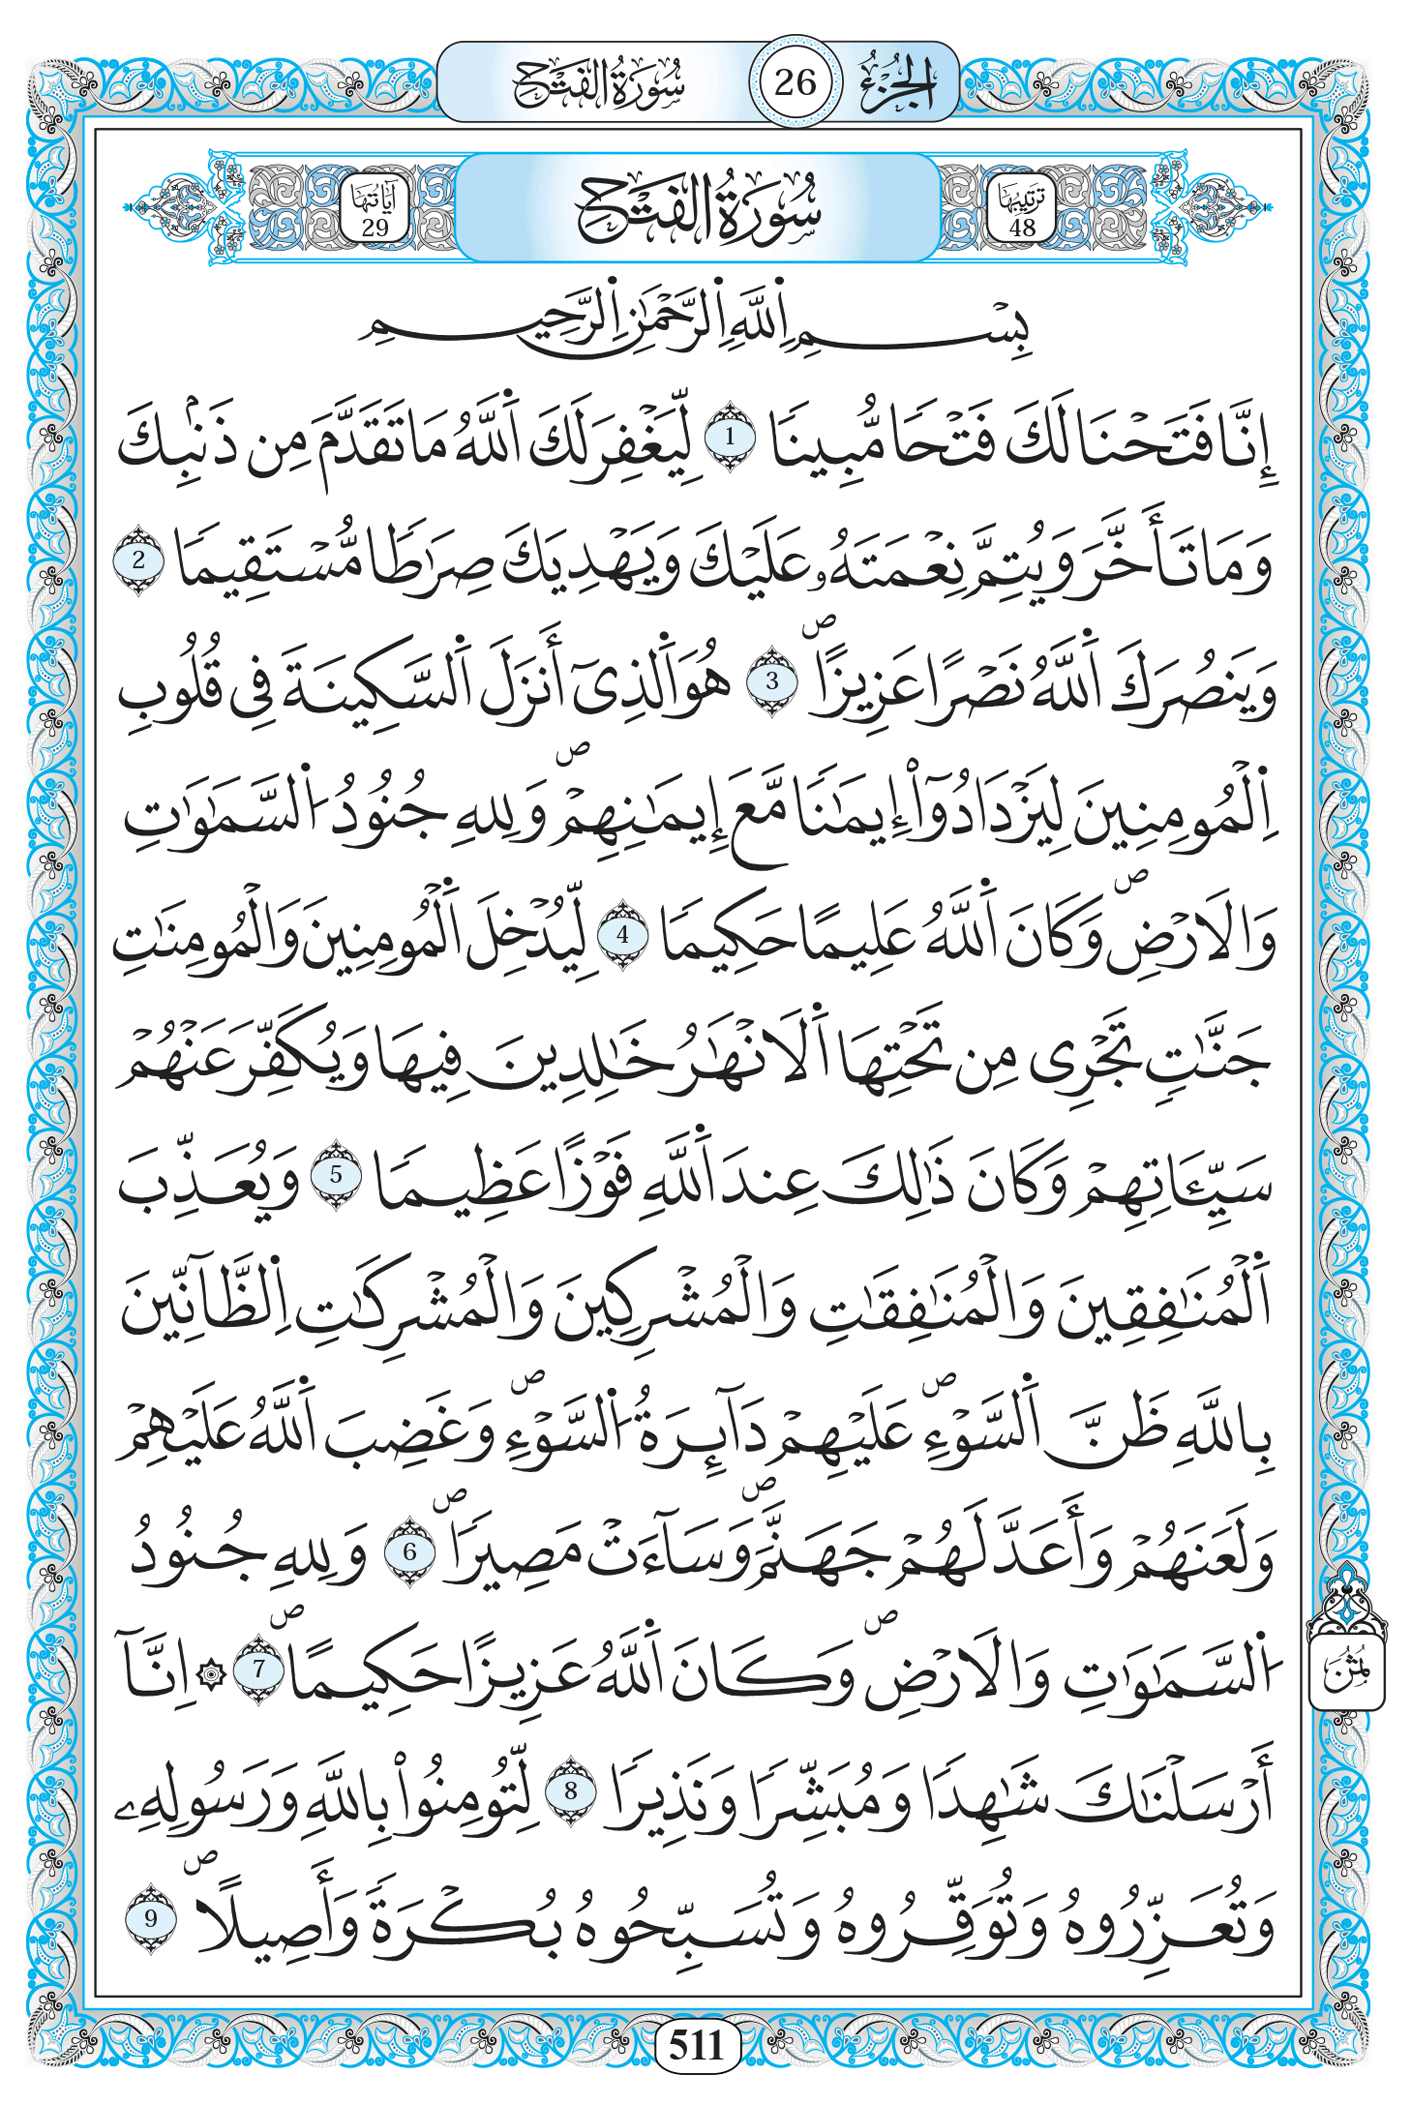 الجُزْءُ 26 سُورَةُ الفَتْحِ
تَرْتِيبُهَا 48 سُورَةُ الفَتْحِ آيَاتُهَا 29
بِسْمِ اِ۬للَّهِ اِ۬لرَّحْمَٰنِ اِ۬لرَّحِيمِ
إِنَّا فَتَحْنَا لَكَ فَتْحاٗ مُّبِيناٗ 1 لِّيَغْفِرَ لَكَ اَ۬للَّهُ مَا تَقَدَّمَ مِن ذَنۢبِكَ
وَمَا تَأَخَّرَ وَيُتِمَّ نِعْمَتَهُۥ عَلَيْكَ وَيَهْدِيَكَ صِرَٰطاٗ مُّسْتَقِيماٗ 2
وَيَنصُرَكَ اَ۬للَّهُ نَصْراً عَزِيزاًۖ 3 هُوَ اَ۬لذِےٓ أَنزَلَ اَ۬لسَّكِينَةَ فِے قُلُوبِ
اِ۬لْمُومِنِينَ لِيَزْدَادُوٓاْ إِيمَٰناٗ مَّعَ إِيمَٰنِهِمْۖ وَلِلهِ جُنُودُ اُ۬لسَّمَٰوَٰتِ
وَالَارْضِۖ وَكَانَ اَ۬للَّهُ عَلِيماً حَكِيماٗ 4 لِّيُدْخِلَ اَ۬لْمُومِنِينَ وَالْمُومِنَٰتِ
جَنَّٰتٖ تَجْرِے مِن تَحْتِهَا اَ۬لَانْهَٰرُ خَٰلِدِينَ فِيهَا وَيُكَفِّرَ عَنْهُمْ
سَيِّـَٔاتِهِمْ وَكَانَ ذَٰلِكَ عِندَ اَ۬للَّهِ فَوْزاً عَظِيماٗ 5 وَيُعَذِّبَ
اَ۬لْمُنَٰفِقِينَ وَالْمُنَٰفِقَٰتِ وَالْمُشْرِكِينَ وَالْمُشْرِكَٰتِ اِ۬لظَّآنِّينَ
بِاللَّهِ ظَنَّ اَ۬لسَّوْءِۖ عَلَيْهِمْ دَآئِرَةُ اُ۬لسَّوْءِۖ وَغَضِبَ اَ۬للَّهُ عَلَيْهِمْ
وَلَعَنَهُمْ وَأَعَدَّ لَهُمْ جَهَنَّمَۖ وَسَآءَتْ مَصِيراٗۖ 6 وَلِلهِ جُنُودُ
اُ۬لسَّمَٰوَٰتِ وَالَارْضِۖ وَكَانَ اَ۬للَّهُ عَزِيزاً حَكِيماًۖ 7 ۞ اِنَّآ
ثُمُن
أَرْسَلْنَٰكَ شَٰهِداٗ وَمُبَشِّراٗ وَنَذِيراٗ 8 لِّتُومِنُواْ بِاللَّهِ وَرَسُولِهِۦ
وَتُعَزِّرُوهُ وَتُوَقِّرُوهُ وَتُسَبِّحُوهُ بُكْرَةٗ وَأَصِيلاًۖ 9
511